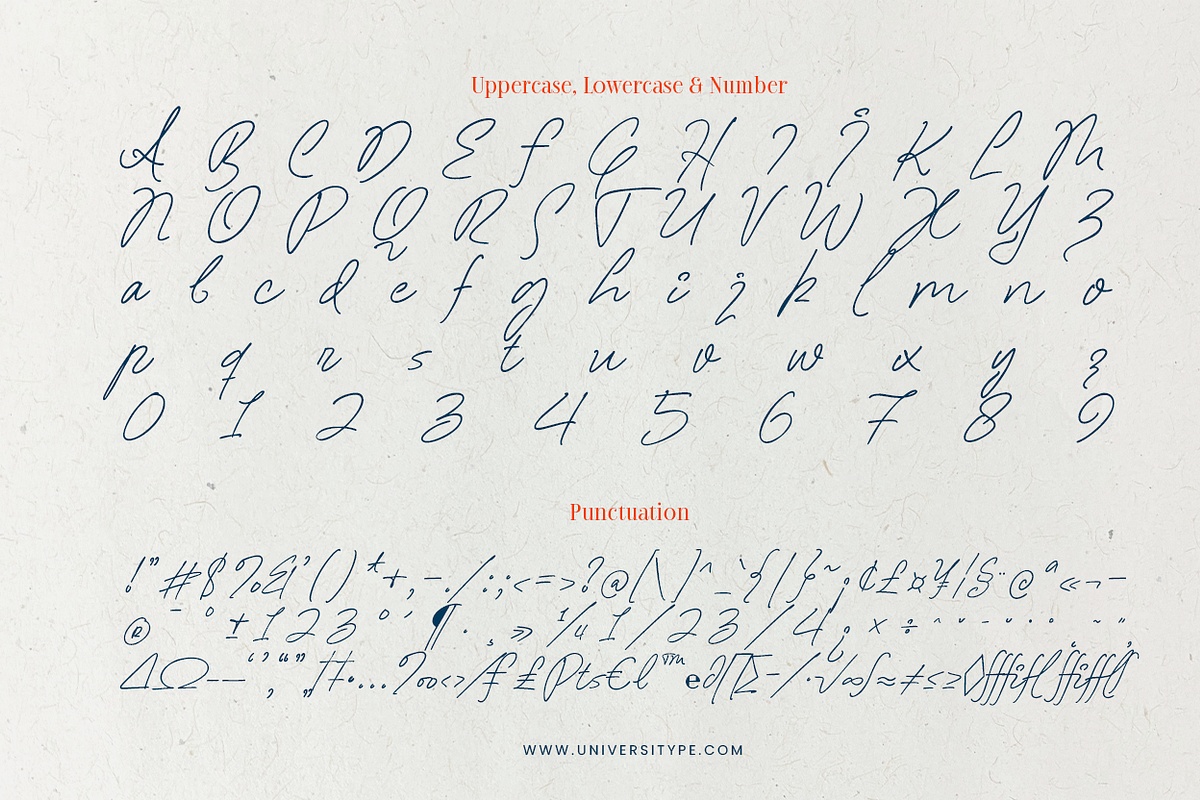 Uppercase, Lowercase & Number
A B C D E F G H I J K L M
N O P Q R S T U V W X Y Z
a b c d e f g h i j k l m n o
p q r s t u v w x y z
0 1 2 3 4 5 6 7 8 9
Punctuation
! " # $ % & ' ( ) * + , - . / : ; < = > ? @ [ \ ] ^ _ ` { | } ~ ¡ ¢ £ ¤ ¥ ¦ § ¨ © ª « ¬ -
® ¯ ° ± 1 2 3 ° ´ ¶ · ¸ » 1/4 1 / 2 3 / 4 ¿ × ÷ ˆ ˇ ˉ ˘ ˙ ˚ ˜ ˝
Δ Ω – — ‘ ’ ‚ “ ” „ † ‡ • … ‰ ‹ › ⁄ ƒ ₤ Pts € ℓ ™ ℮ ∂ ∏ ∑ − ∕ ∙ √ ∞ ∫ ≈ ≠ ≤ ≥ ◊
WWW.UNIVERSITYPE.COM